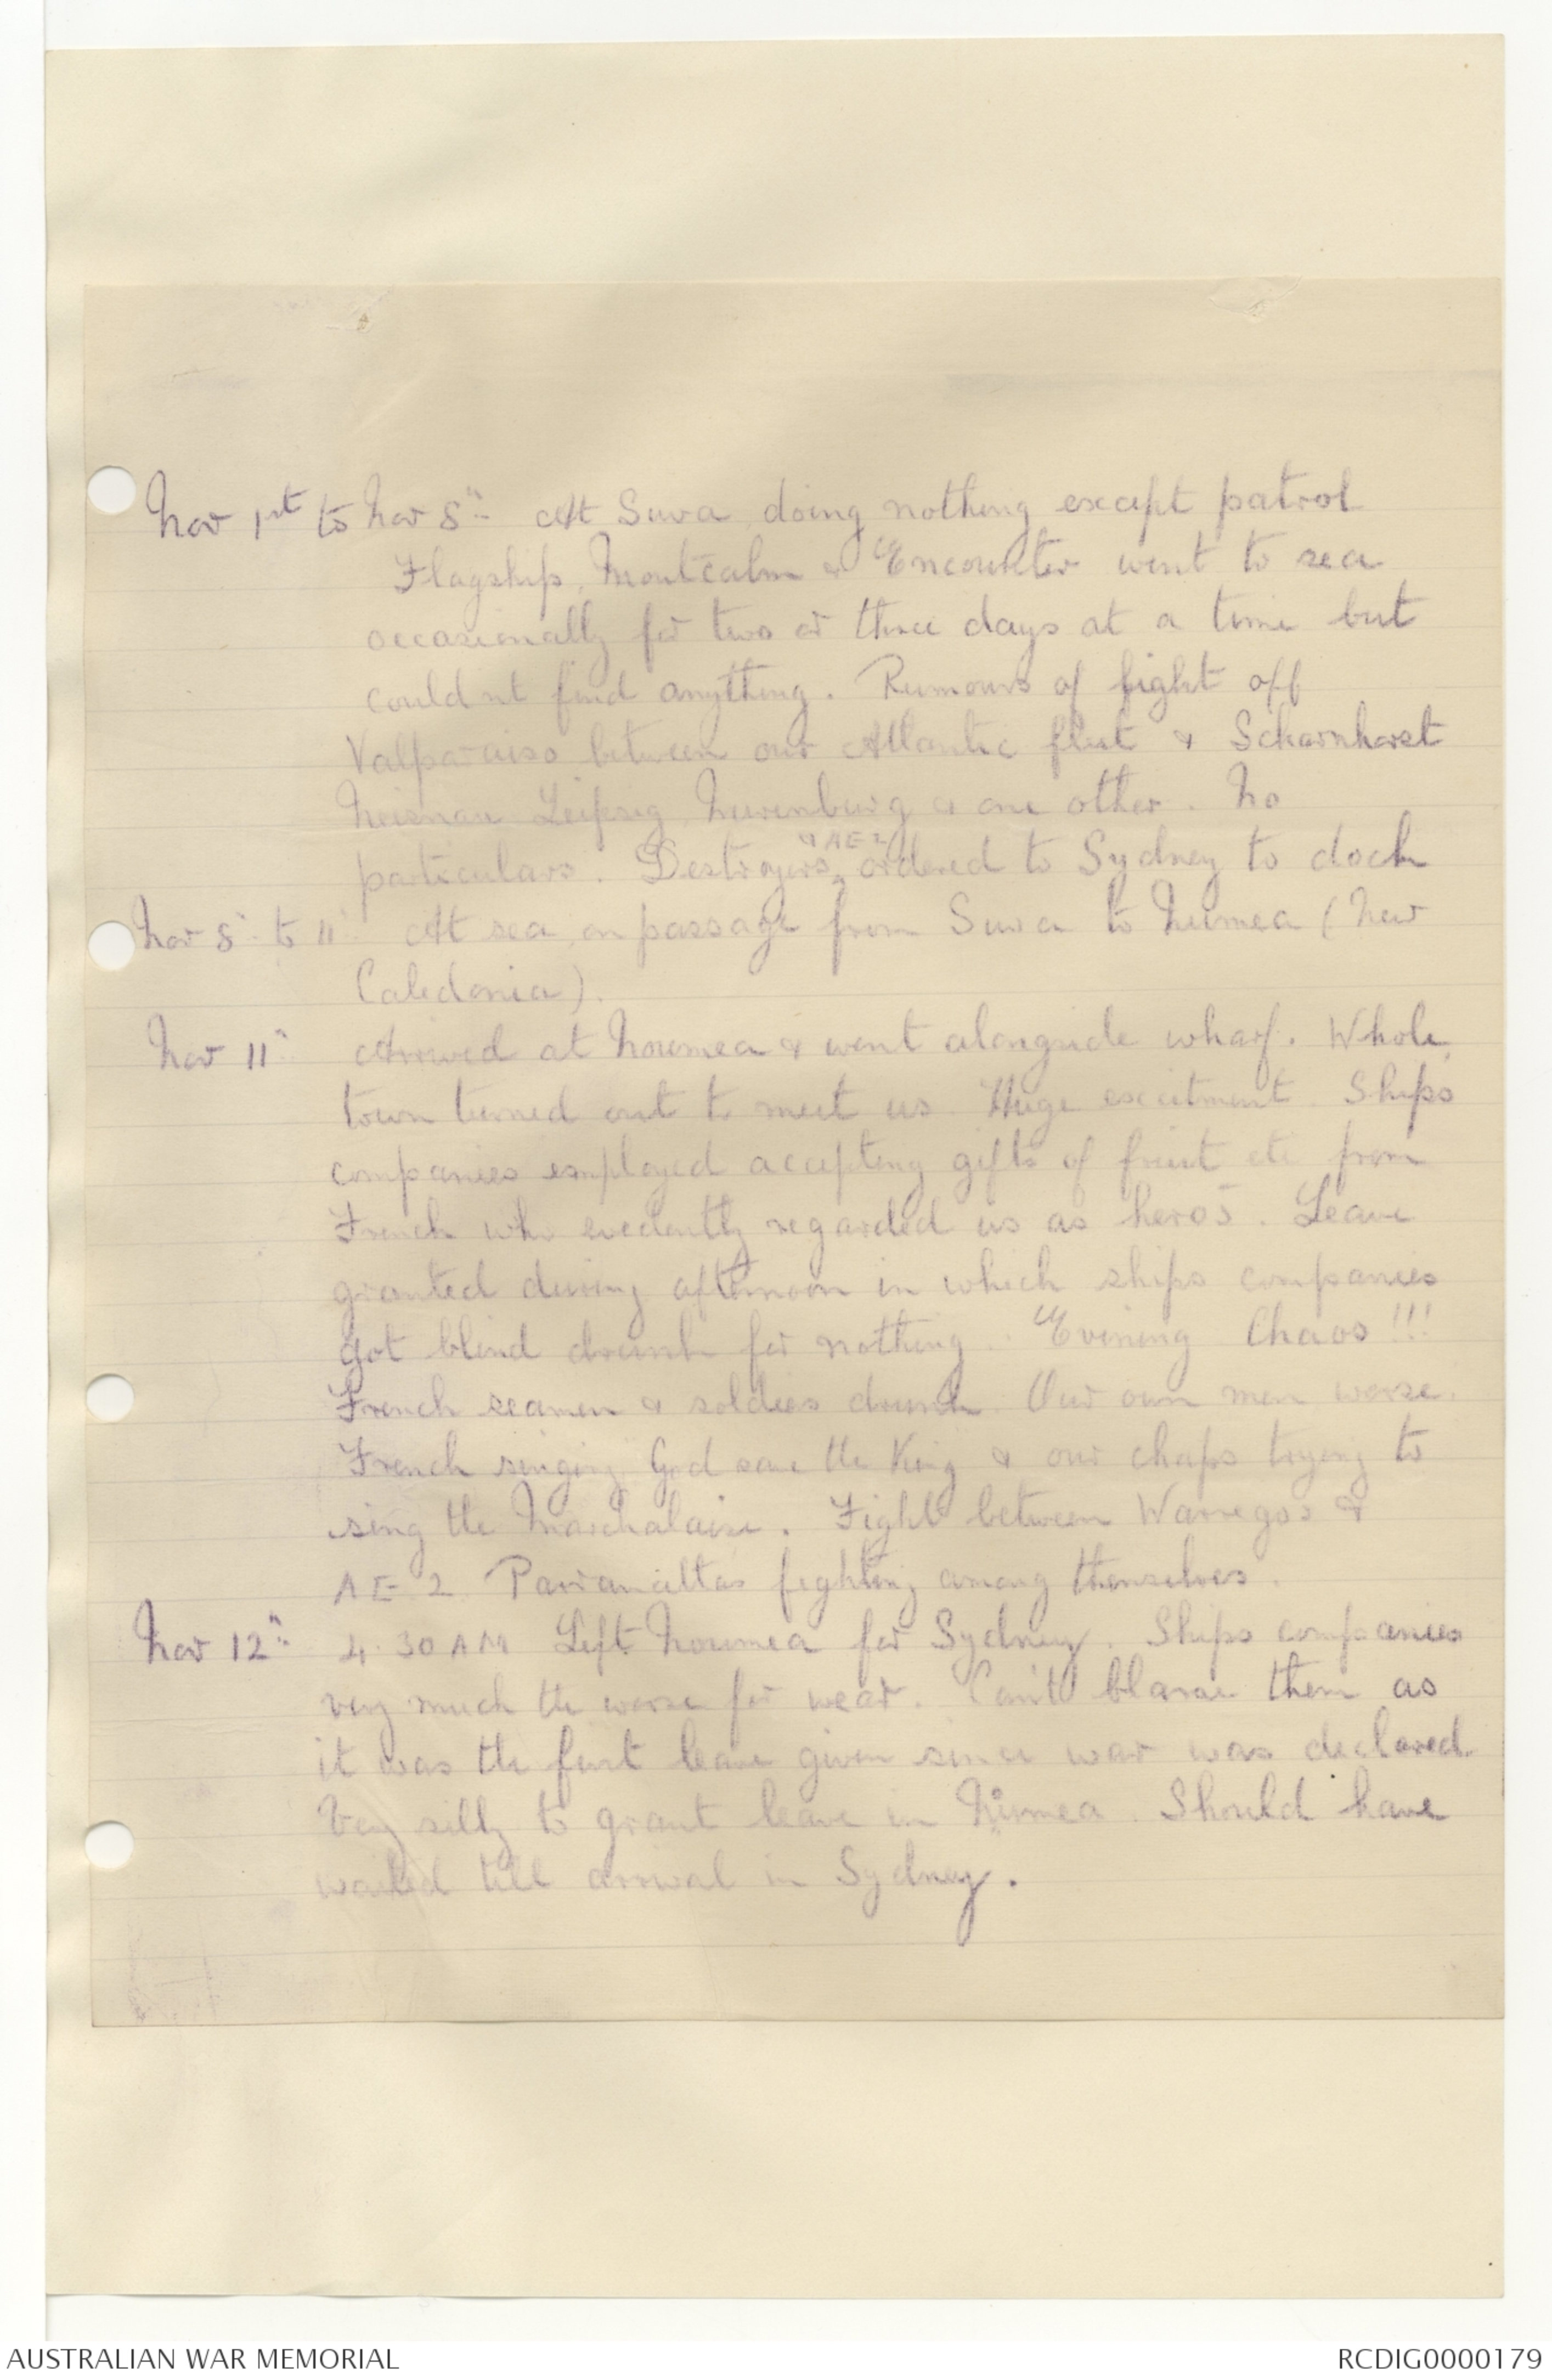 Nov 1st to Nov 8th At Suva doing nothing except patrol
Flagship, Montcalm & Encounter went to sea
occasionally for two or three days at a time but
couldnt find anything. Rumours of fight off
Valparaiso between our Atlantic fleet & Scharnhorst
Neisnau Leipsig Nurenburg & one other. No
particulars. Destroyers & AE 2 ordered to Sydney to dock
Nov 8th to 11th At sea on passage from Suva to Numea (New
Caledonia).
Nov 11th Arrived at Noumea & went alongside wharf. Whole
town turned out to meet us. Huge excitment. Ships
companies employed accepting gifts of fruit etc from
French who evedently regarded us as heros. Leave
granted during afternoon in which ships companies
got blind drunk for nothing. Evening Chaos!!!
French seamen & soldiers drunk. Our own men worse.
French singing God save the King & our chaps trying to
sing the Marchalaise. Fight between Warregos &
AE 2 Parramattas fighting among themselves.
Nov 12th 4.30 AM Left Noumea for Sydney. Ships companies
very much the worse for wear. Can't blame them as
it was the first leave given since war was declared.
Very silly to grant leave in Numea. Should have
waited till arrival in Sydney.
AUSTRALIAN WAR MEMORIAL
RCDIG0000179